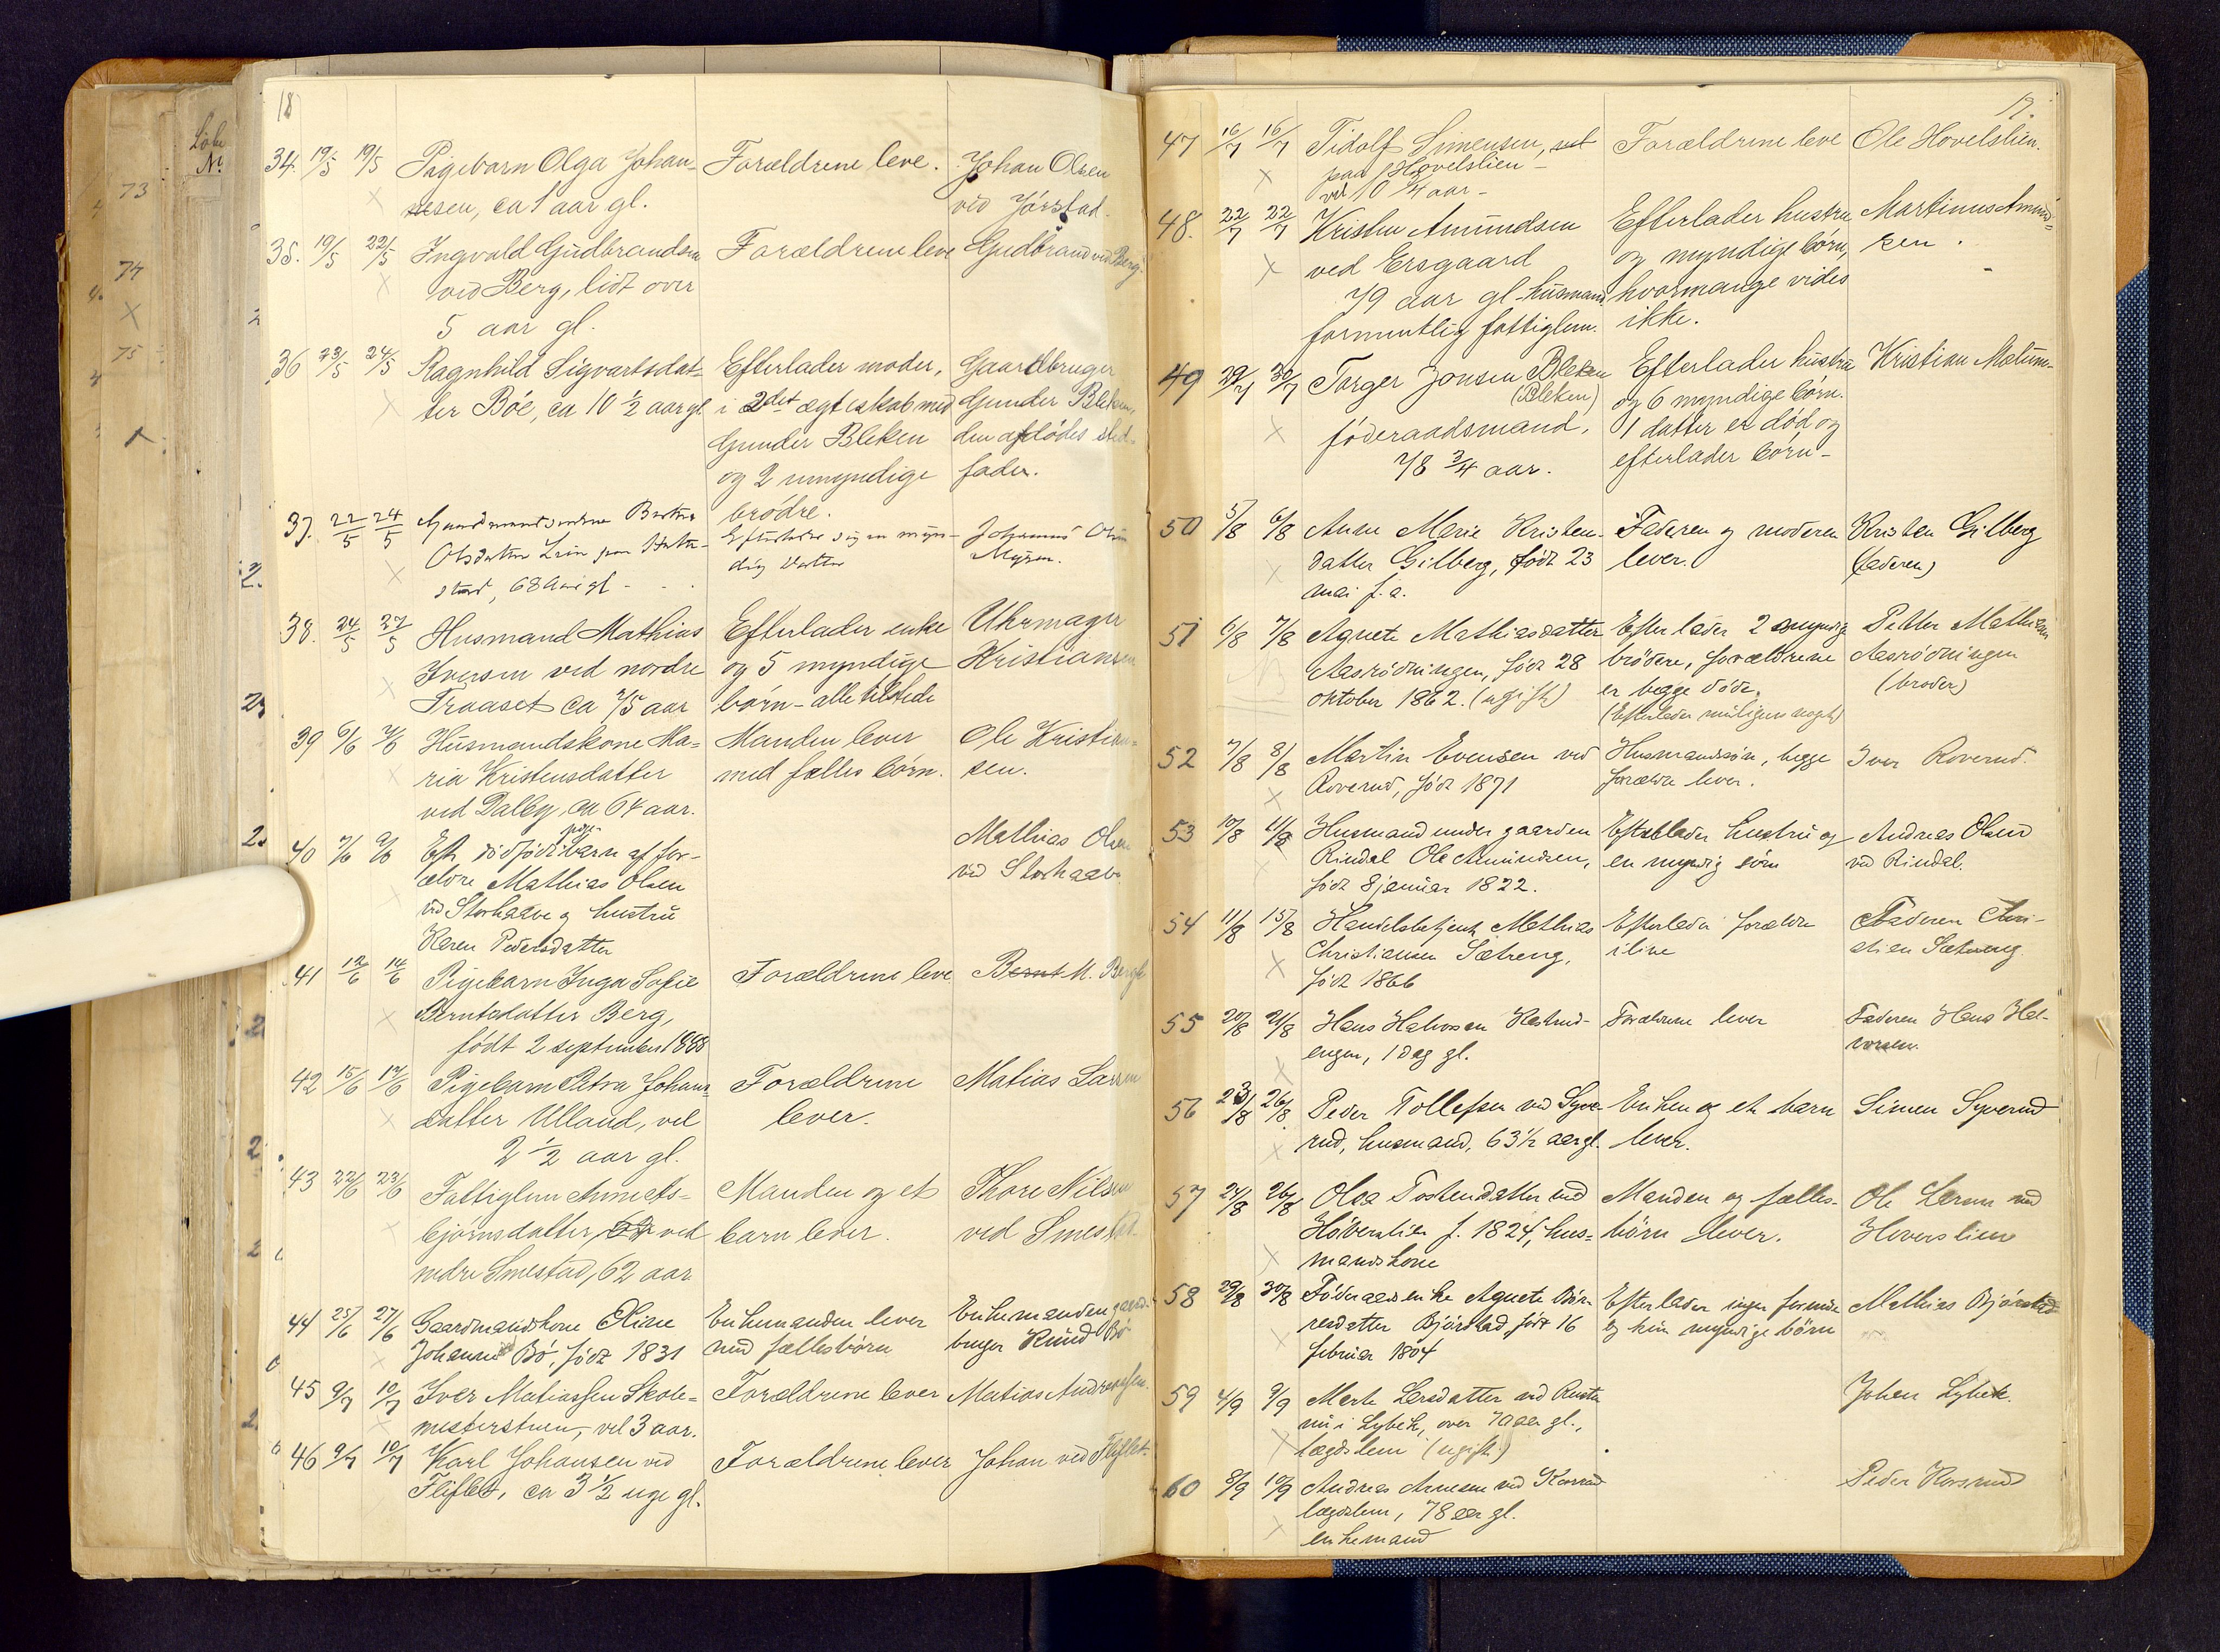 18
34. 19/5 19/5 Pigebarn Olga Johan- Forældrene leve. Johan Olsen
nesen, ca 1 aar gl. ved Jørstad.
35. 19/5 22/5 Ingvald Gudbrandsen Forældrene leve Gudbrand ved Berg.
ved Berg, lidt over
5 aar gl.
36 23/5 24/5 Ragnhild Sigvartsdat- Efterlader moder, Gaardbruger
ter Böe, ca 10 ½ aar gl. i 2det ægteskab med Gunder Bleken,
Gunder Bleken den afdödes sted-
og 2 umyndige fader.
brödre.
37. 22/5 24/5 Gaardmandsenken Berthe Efterlader sig en myn- Johannes Olsen
Olsdatter Lein paa dig datter Myren.
stad, 68 Aar gl -
38. 24/5 27/5 Husmand Mathias Efterlader enke Uhrmager
Iversen ved nordre og 5 myndige Kristiansen
Traaset ca 75 aar börn - alle tilstede
39 6/6 7/6 Husmandskone Ma- Manden lever Ole Kristian-
ria Kristensdatter med fælles börn. sen.
ved Dalby, ca 64 aar.
40 7/6 9/6 Et dödfödt pige-barn af for- Mathias Olsen
ældre Mathias Olsen ved Storhaave
ved Storhaave og hustru
Karen Pedersdatter
41 12/6 14/6 Pigebarn Inga Sofie Forældrene leve Bernt M. Berg
Berntsdatter Berg,
födt 2 september 1888
42 15/6 17/6 Pigebarn Petra Johans- Forældrene Matias Larsen
datter Ulland, vel lever.
2 ½ aar gl.
43 22/6 23/6 Fattiglem Anne As- Manden og et Thore Nilsen
bjørnsdatter, ved barn lever. ved Smestad
nedre Smestad, 62 aar
44 25/6 27/6 Gaardmandskone Oline Enkemanden lever Enkemanden gaard-
Johannesd Bö, födt 1831 med fællesbörn bruger Knud Bö
45 9/7 10/7 Iver Matiassen Skole- Forældrene lever Matias Andreassen.
mesterstuen, vel 3 aar.
46 9/7 10/7 Karl Johansen ved Forældrene lever Johan ved Fliflet.
Fliflet, ca 3 ½ uge gl.
19.
47 16/7 16/7 Tidolf Simensen, Forældrene leve Ole Hovelslien.
paa Hovelslien -
ved 10 ¾ aar -
48. 22/7 22/7 Kristen Amundsen Efterlader hustru Martinus Amund-
ved Ersgaard og myndige börn, sen.
79 aar gl - husmand hvormange vides
formentlig fattiglem. ikke.
49 29/7 30/7 Torger Jonsen Bleken Efterlader hustru Kristian Matum-
(Bleken) og 6 myndige börn.
föderaadsmand. 1 datter er död og
78 ¾ aar. efterlader börn -
50 5/8 6/8 Anne Marie Kristen- Faderen og moderen Kristen Gilberg
datter Gilberg, födt 23 lever. (faderen)
mai f. a.
51 6/8 7/8 Agnete Mathiasdatter Efterlader 2 myndige Petter Mathisen
Aasrödningen, födt 28 brödre, forældrene Aasrödningen
oktober 1862. (ugift) er begge döde. (broder)
(Efterlader muligens noget)
52 7/8 8/8 Martin Evensen ved Husmandssön, begge Iver Roverud.
Roverud, födt 1871 forældre lever.
53 10/8 11/8 Husmand under gaarden Efterlader hustru og Andreas Olsen
Rindal Ole Amundsen, en myndig sön ved Rindal.
födt 8 januar 1822.
54 11/8 15/8 Handelsbetjent Mathias Efterlader forældre Faderen Chri-
Christiansen Sætreng, i live stian Sætreng.
födt 1866
55 20/8 21/8 Hans Halvorsen Forældrene lever Faderen Hans Hal-
engen, 1 dag gl. vorsen.
56 23/8 26/8 Peder Tollefsen ved Syve- Enken og et barn Simen Syverud
rud, husmand, 63 ½ aar gl. lever.
57 24/8 26/8 Olea Tostendatter ved Manden og fælles- Ole Larsen ved
Höverslien f. 1824, hus- börn lever. Hoverslien
mandskone
58 29/8 30/8 Föderaadsenke Agnete Bör- Efterlader ingen formue Mathias Björnstad
resdatter Björnstad, födt 16 og kun myndige börn
februar 1804
59 4/9 9/9 Marte Larsdatter ved Johan Lybek.
i Lybek, over 70 aar gl.,
lægdslem (ugift)
60 8/9 10/9 Andreas Arnesen ved Korsrud Peder Korsrud
lægdslem, 78 aar gl.
enkemand